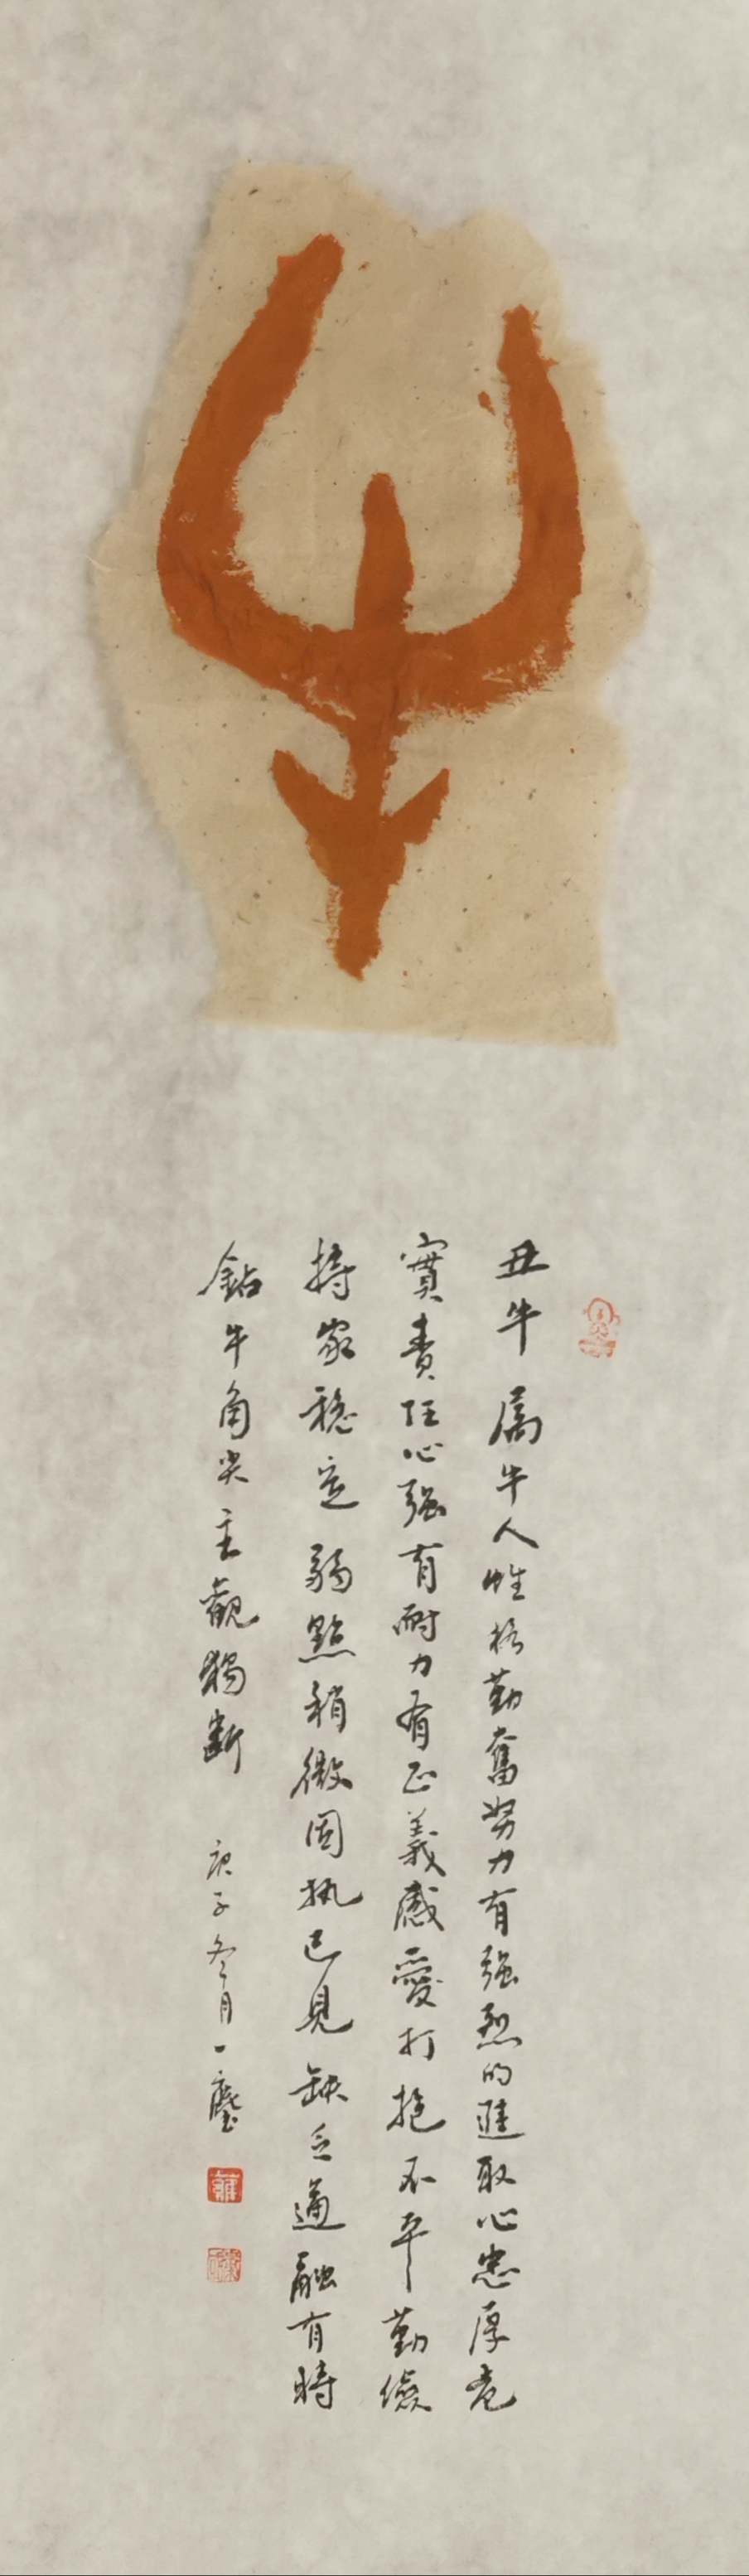 牛
丑牛 属牛人性格勤奮努力有强烈的進取心忠厚老
實責任心强有耐力有正義感愛打抱不平勤儉
持家穩定弱點稍微固执己見缺乏通融有時
鉆牛角尖主觀獨斷 庚子冬月一塵